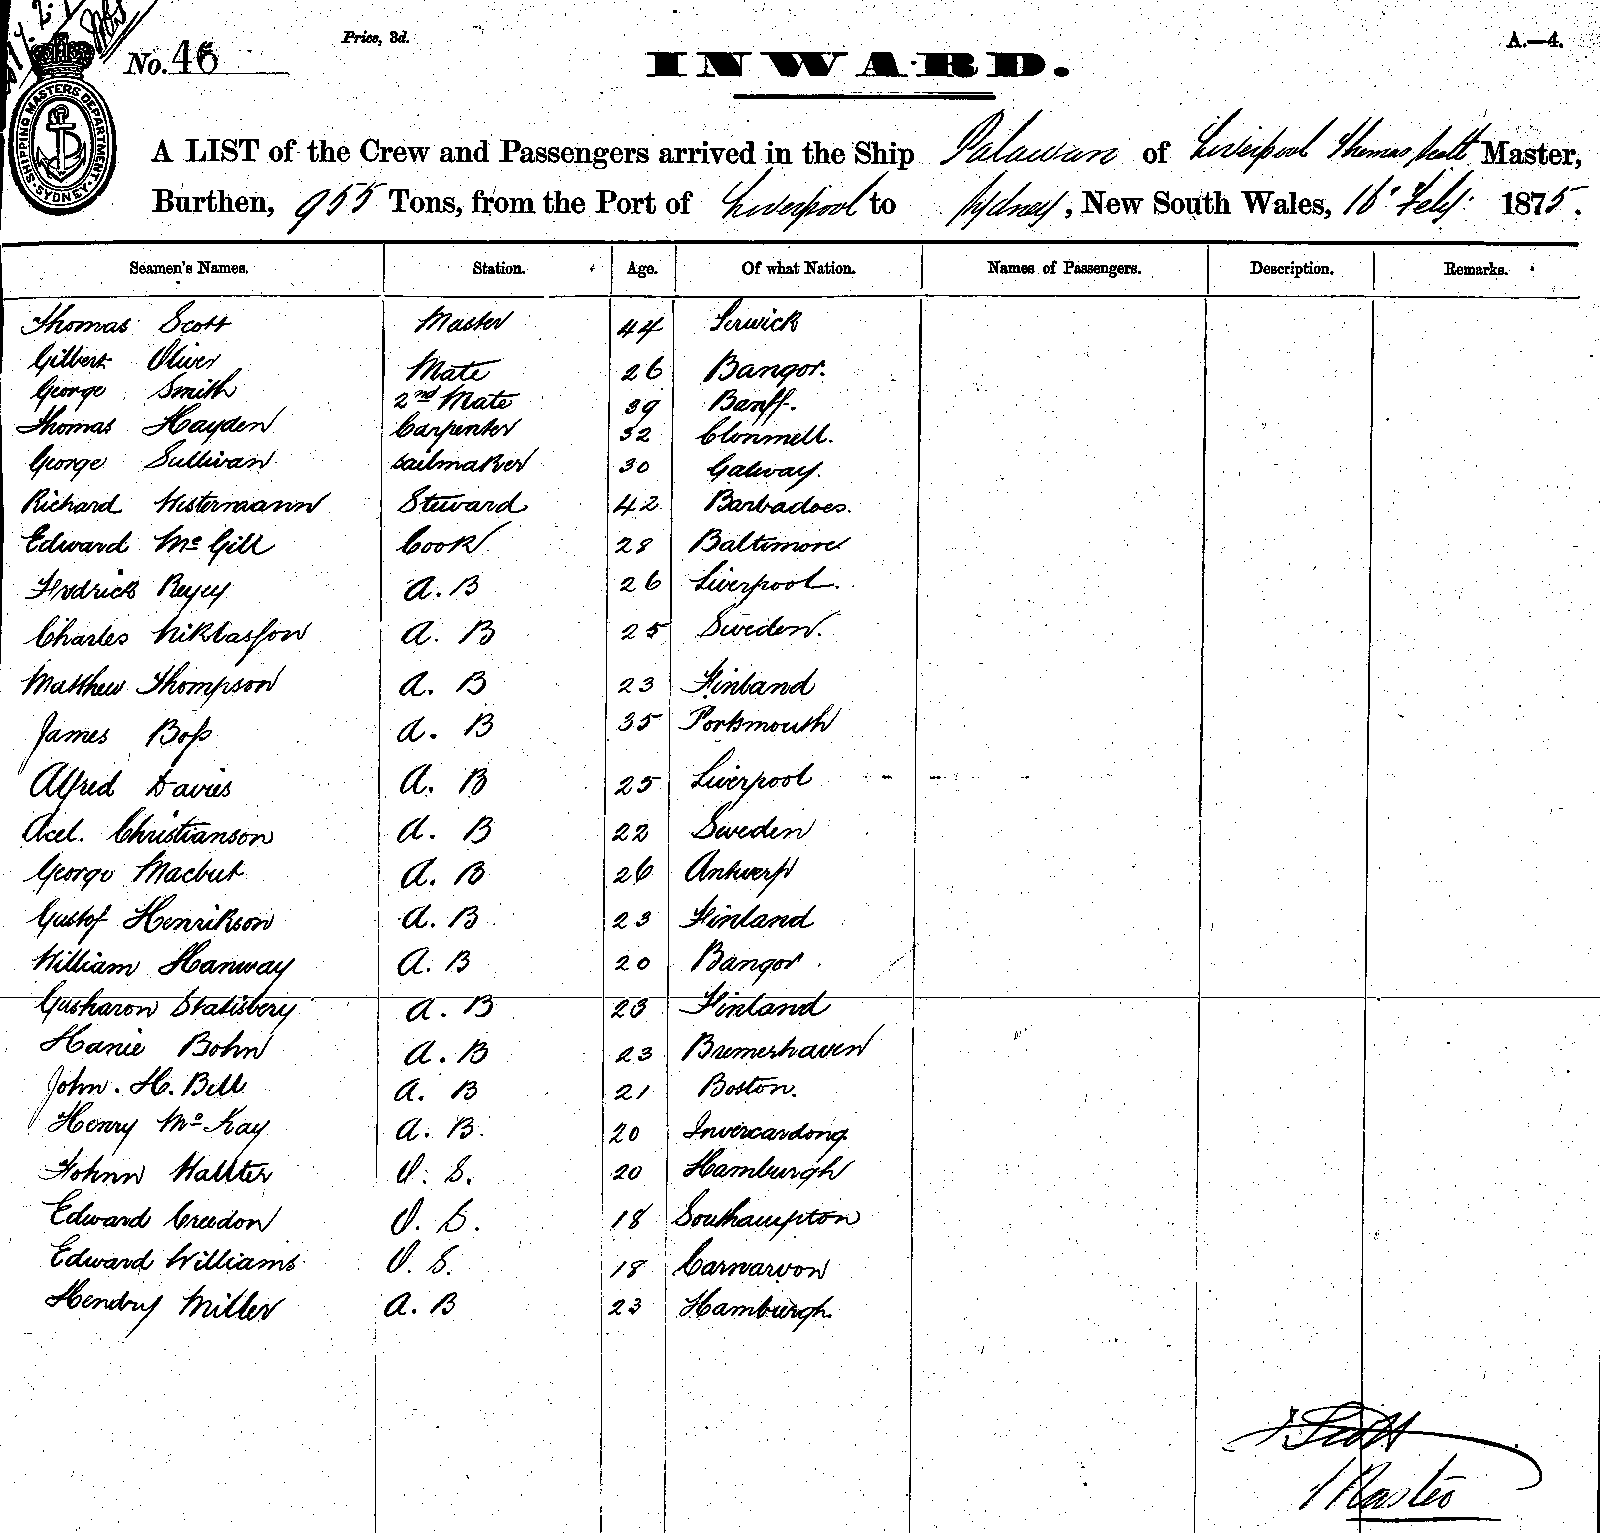 No. 46
Price, 3d.
INWARD.
A.—4.
SHIPPING MASTERS DEPARTMENT. SYDNEY
A LIST of the Crew and Passengers arrived in the Ship Palawan of Liverpool Thomas Scott Master,
Burthen, 955 Tons, from the Port of Liverpool to Sydney, New South Wales, 16 Feby 1875.
Seamen's Names. Station. Age. Of what Nation. Names of Passengers. Description. Remarks.
Thomas Scott Master 44 Lerwick
Gilbert Oliver Mate 26 Bangor.
George Smith 2nd Mate 39 Banff.
Thomas Hayden Carpenter 32 Clonmell.
George Sullivan Sailmaker 30 Galway.
Richard Westermann Steward 42 Barbadoes.
Edward McGill Cook 28 Baltimore
Fredrick Reyey A.B 26 Liverpool.
Charles Niklasson A. B 25 Sweden.
Matthew Thompson A. B 23 Finland
James Boss A. B 35 Portsmouth
Alfred Davies A. B 25 Liverpool
Acel. Christianson A. B 22 Sweden
George Macbut A. B 26 Antwerp
Gustof Henrikson A. B 23 Finland
William Hanway A. B 20 Bangor.
Gusharon Statisbery A. B 23 Finland
Hanie Bohn A. B 23 Bremerhaven
John. H. Bell A. B 21 Boston.
Henry McKay A. B. 20 Invercardong
Johnn Wallter O. S. 20 Hamburgh
Edward Creedon O. S. 18 Southampton
Edward Williams O. S. 18 Carnarvon
Hendry Miller A. B 23 Hamburgh.
T Scott
Master